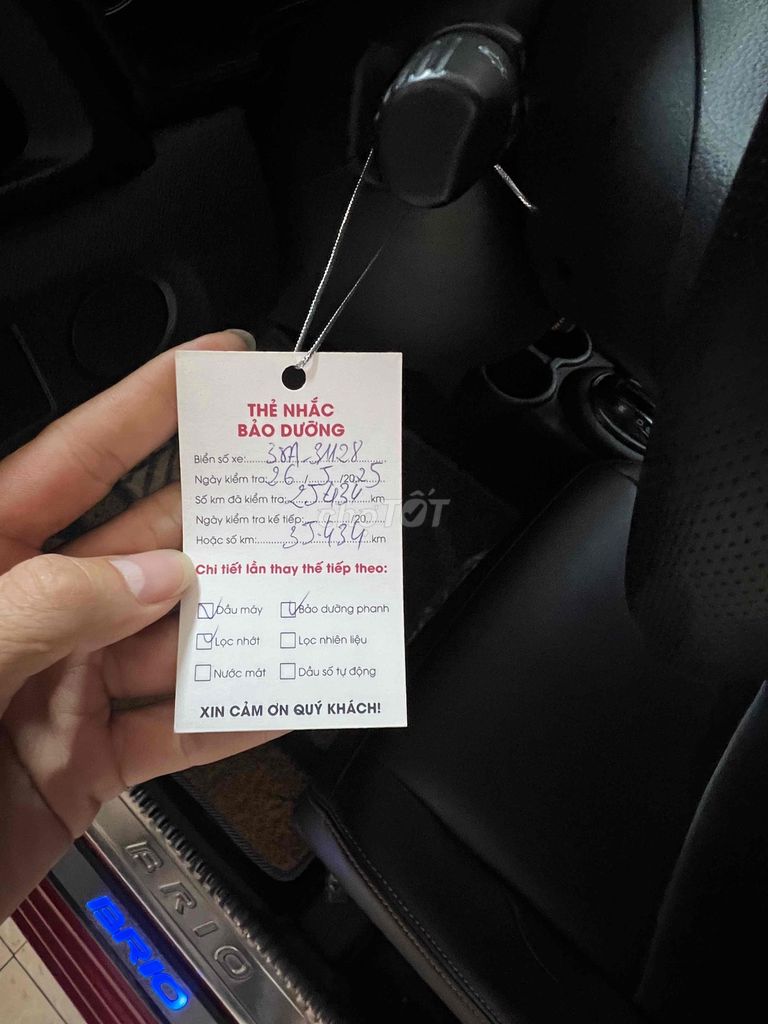 THẺ NHẮC
BẢO DƯỠNG
Biển số xe: 38A-31128
Ngày kiểm tra: 26/5/2025
Số km đã kiểm tra: 25.434 km
Ngày kiểm tra kế tiếp: / /20
Hoặc số km: 35.434 km
Chi tiết lần thay thế tiếp theo:
Dầu máy Bảo dưỡng phanh
Lọc nhớt Lọc nhiên liệu
Nước mát Dầu số tự động
XIN CẢM ƠN QUÝ KHÁCH!
choTỐT
BRIO
BRIO